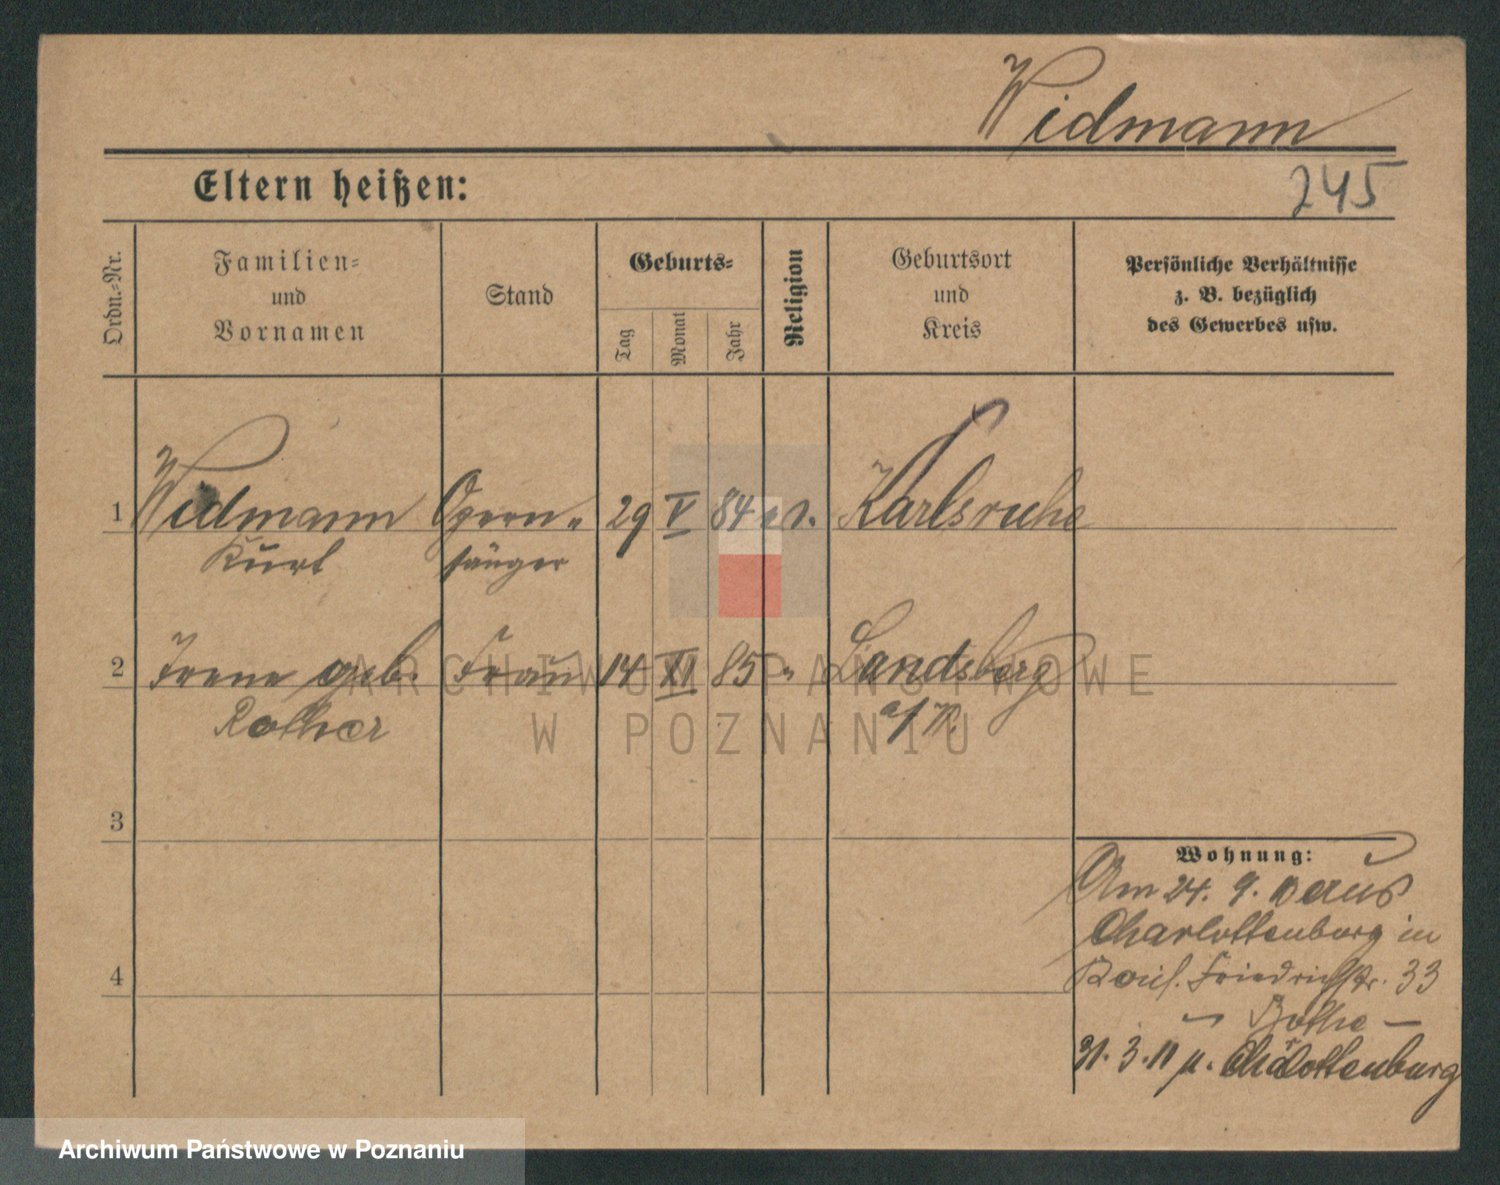 Widmann
Eltern heißen:
245
Ordn.-Nr.
Familien-
und
Vornamen
Stand
Geburts-
Tag
Monat
Jahr
Religion
Geburtsort
und
Kreis
Persönliche Verhältnisse
z. B. bezüglich
des Gewerbes usw.
1 Widmann Opern- 29 V 84 ev. Karlsruhe
Kurt sänger
2 Irene geb. Frau 14 XI 85 " Landsberg
Rother a/W.
3
4
Wohnung:
Am 24. 9. 10 aus
Charlottenburg in
Kais. Friedrichstr. 33
Bothe –
31. 3. 11 n. Charlottenburg
ARCHIWUM PAŃSTWOWE
W POZNANIU
Archiwum Państwowe w Poznaniu